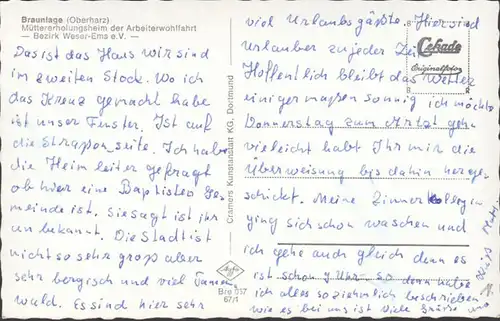 Braunlage (Oberharz)
Müttererholungsheim der Arbeiterwohlfahrt
— Bezirk Weser-Ems e.V. —
Das ist das Haus wir sind
im zweiten Stock. Wo ich
das Kreuz gemacht habe
ist unser Fenster. Ist auf
die Straßenseite. Ich habe
die Heimleiter gefragt
ob hier eine Baptisten Ge-
meinde ist. Sie sagt ist ihr
unbekannt. Die Stadt ist
nicht so sehr groß aber
sehr bergisch und viel Tannen
wald. Es sind hier sehr
Cramers Kunstanstalt KG, Dortmund
Agfa
Bre 937
67/1
Cekade
Originalfotos
viel Urlaubsgäßte. Hier sind
Urlauber zu jeder Zeit
Hoffentlich bleibt das Wetter
einigermaßen sonnig ich möchte
Donnerstag zum Artzt gehn
vieleicht habt Ihr mir die
Überweisung bis dahin herge-
schickt. Meine Zimmer kollegin
ging sich schon waschen und
ich gehe auch gleich denn es
ist schon 7 Uhr. So denn habe
ich alles so ziemlich beschrieben
wie es bei uns ist viele Grüße